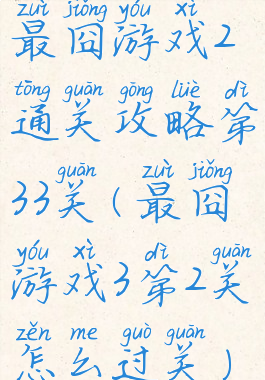 zuì jiǒng yóu xì
最囧游戏2
tōng guān gōng lüè dì
通关攻略第
guān zuì jiǒng
33关(最囧
yóu xì dì guān
游戏3第2关
zěn me guò guān
怎么过关)